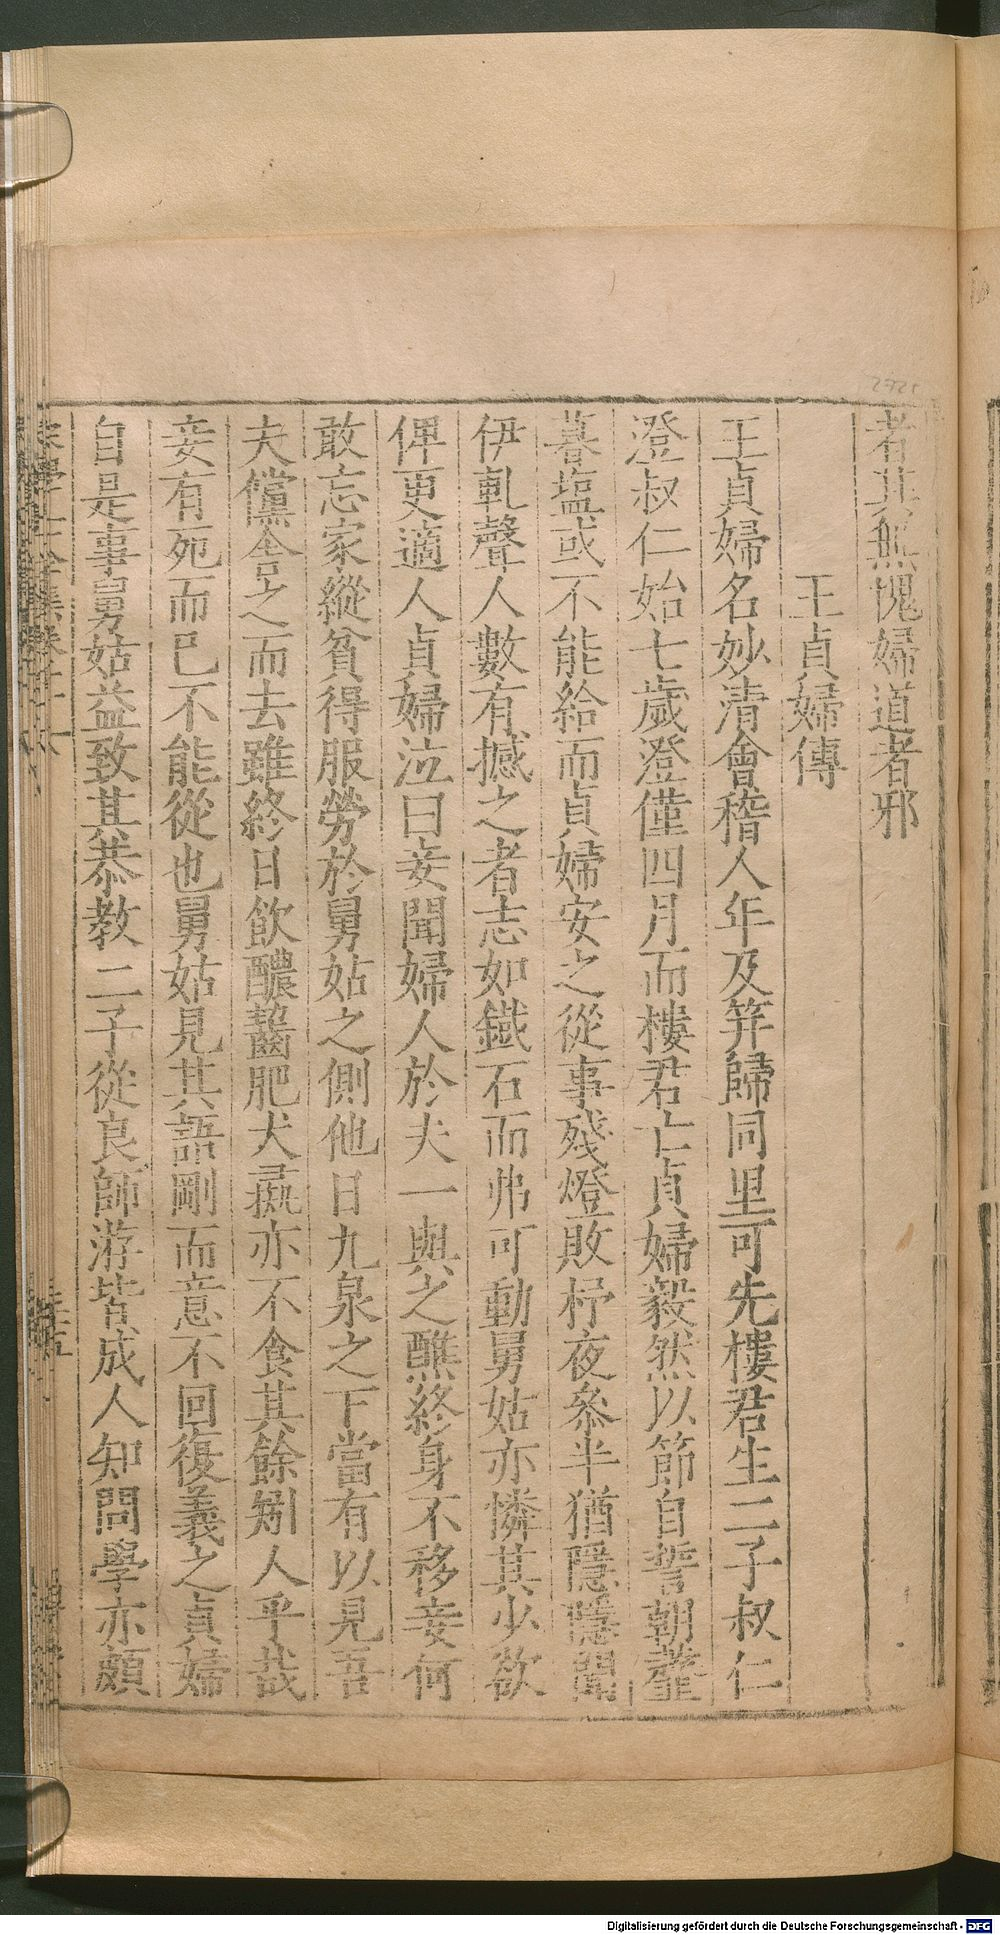 者其無愧婦道者邪
王貞婦傳
王貞婦名妙清會稽人年及笄歸同里可先樓君生二子叔仁
澄叔仁始七歲澄僅四月而樓君亡貞婦毅然以節自誓朝虀
暮塩或不能給而貞婦安之從事殘燈敗杼夜參半猶隱隱聞
伊軋聲人數有撼之者志如鐵石而弗可動舅姑亦憐其少欲
俾更適人貞婦泣曰妾聞婦人於夫一與之醮終身不移妾何
敢忘家縱貧得服勞於舅姑之側他日九泉之下當有以見吾
夫儻舍之而去雖終日飲醲齧肥犬彘亦不食其餘矧人乎哉
妾有死而已不能從也舅姑見其語剛而意不回復義之貞婦
自是事舅姑益致其恭教二子從良師游皆成人知問學亦頗
Digitalisierung gefördert durch die Deutsche Forschungsgemeinschaft - DFG